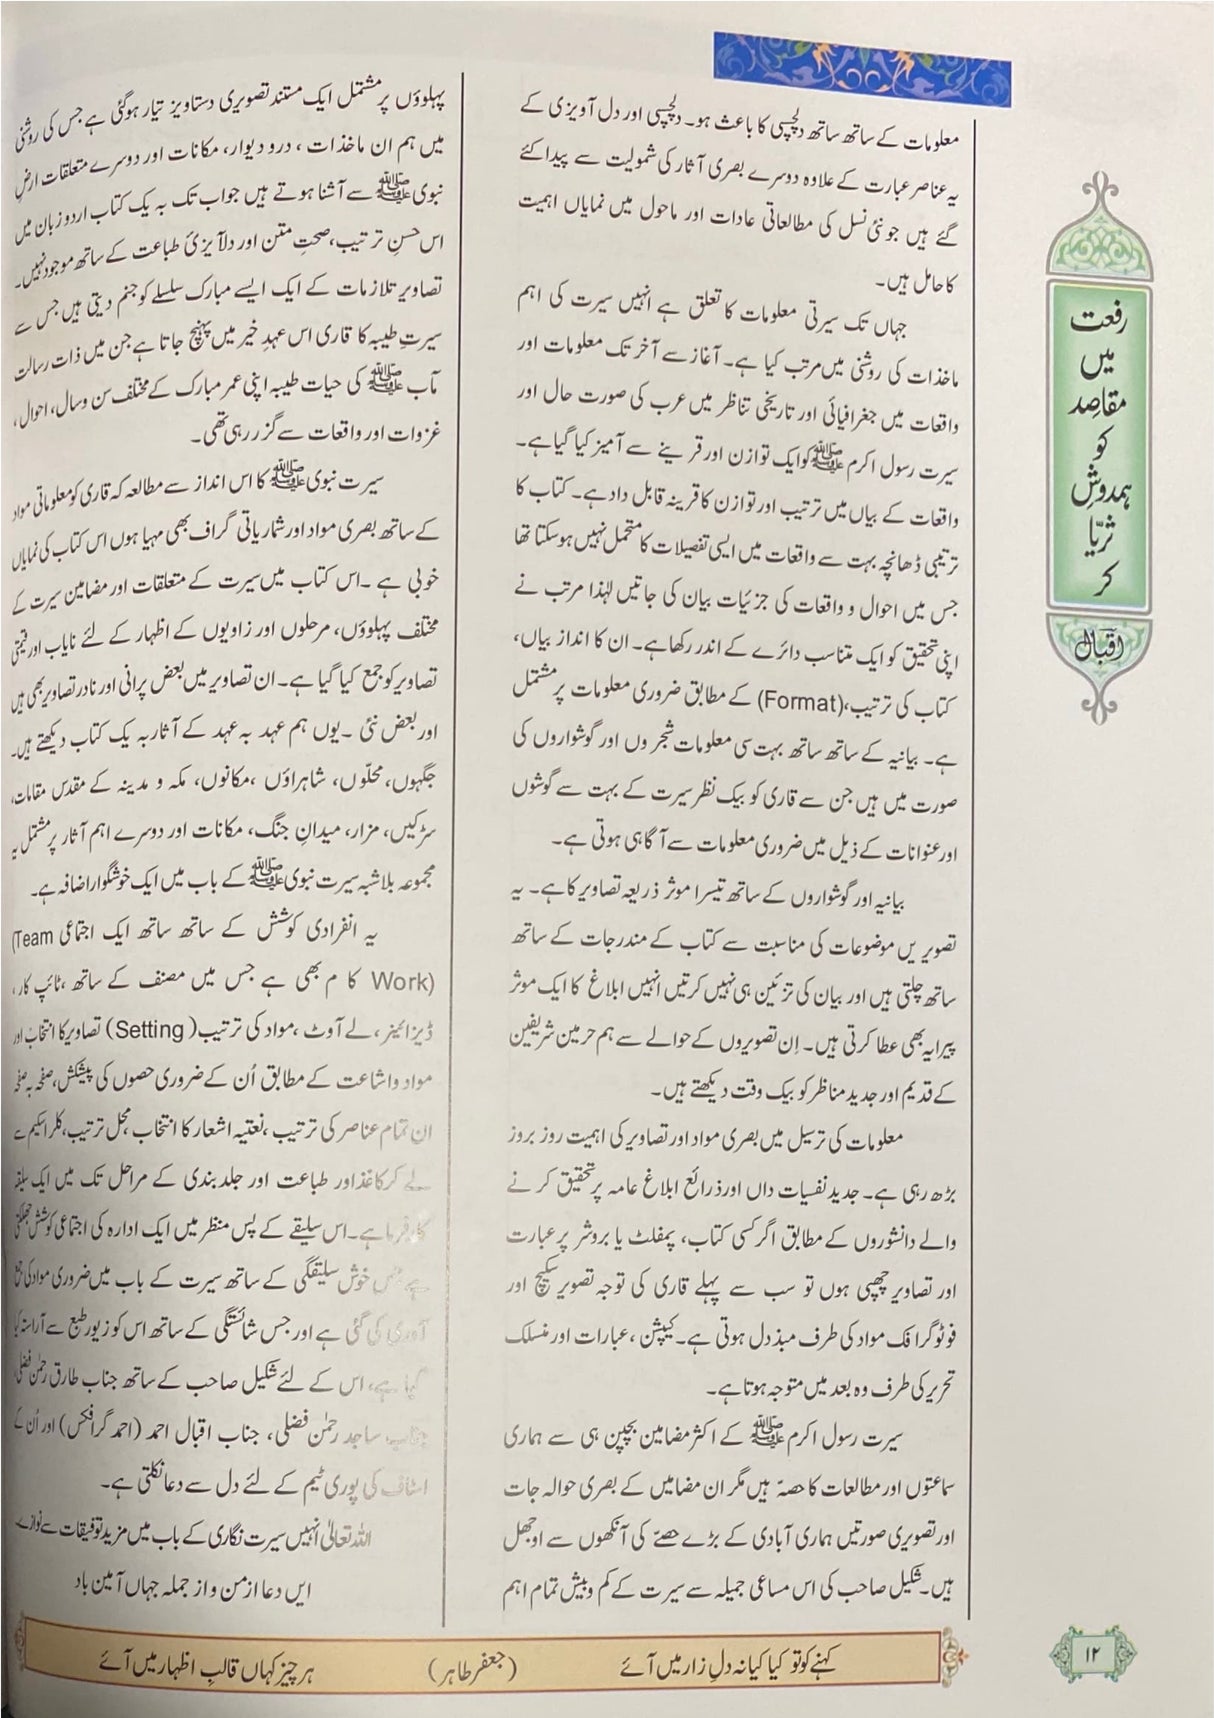 معلومات کے ساتھ ساتھ دلچسپی کا باعث ہو۔ دلچسپی اور دل آویزی کے
یہ عناصر عبارت کے علاوہ دوسرے بصری آثار کی شمولیت سے پیدا کئے
گئے ہیں جو نئی نسل کی مطالعاتی عادات اور ماحول میں نمایاں اہمیت
کا حامل ہیں۔
جہاں تک سیرتی معلومات کا تعلق ہے انہیں سیرت کی اہم
ماخذات کی روشنی میں مرتب کیا ہے۔ آغاز سے آخر تک معلومات اور
واقعات میں جغرافیائی اور تاریخی تناظر میں عرب کی صورت حال اور
سیرت رسول اکرم ﷺ کو ایک توازن اور قرینے سے آمیز کیا گیا ہے۔
واقعات کے بیاں میں ترتیب اور توازن کا قرینہ قابل داد ہے۔ کتاب کا
ترتیبی ڈھانچہ بہت سے واقعات میں ایسی تفصیلات کا متحمل نہیں ہوسکتا تھا
جس میں احوال و واقعات کی جزئیات بیان کی جاتیں لہٰذا مرتب نے
اپنی تحقیق کو ایک متناسب دائرے کے اندر رکھا ہے۔ ان کا انداز بیاں،
کتاب کی ترتیب، (Format) کے مطابق ضروری معلومات پر مشتمل
ہے۔ بیانیہ کے ساتھ ساتھ بہت سی معلومات شجروں اور گوشواروں کی
صورت میں ہیں جن سے قاری کو بیک نظر سیرت کے بہت سے گوشوں
اور عنوانات کے ذیل میں ضروری معلومات سے آگاہی ہوتی ہے۔
بیانیہ اور گوشواروں کے ساتھ تیسرا موثر ذریعہ تصاویر کا ہے۔ یہ
تصویریں موضوعات کی مناسبت سے کتاب کے مندرجات کے ساتھ
ساتھ چلتی ہیں اور بیان کی تزئین ہی نہیں کرتیں انہیں ابلاغ کا ایک موثر
پیرایہ بھی عطا کرتی ہیں۔ اِن تصویروں کے حوالے سے ہم حرمین شریفین
کے قدیم اور جدید مناظر کو بیک وقت دیکھتے ہیں۔
معلومات کی ترسیل میں بصری مواد اور تصاویر کی اہمیت روز بروز
بڑھ رہی ہے۔ جدید نفسیات داں اور ذرائع ابلاغ عامہ پر تحقیق کرنے
والے دانشوروں کے مطابق اگر کسی کتاب، پمفلٹ یا بروشر پر عبارت
اور تصاویر چھپی ہوں تو سب سے پہلے قاری کی توجہ تصویر سکیچ اور
فوٹوگرافک مواد کی طرف مبذول ہوتی ہے۔ کیپشن، عبارات اور منسلک
تحریر کی طرف وہ بعد میں متوجہ ہوتا ہے۔
سیرت رسول اکرم ﷺ کے اکثر مضامین بچپن ہی سے ہماری
سماعتوں اور مطالعات کا حصّہ ہیں مگر ان مضامیں کے بصری حوالہ جات
اور تصویری صورتیں ہماری آبادی کے بڑے حصّے کی آنکھوں سے اوجھل
ہیں۔ شکیل صاحب کی اس مساعی جمیلہ سے سیرت کے کم و بیش تمام اہم
پہلوؤں پر مشتمل ایک مستند تصویری دستاویز تیار ہوگئی ہے جس کی روشنی
میں ہم ان ماخذات، درو دیوار، مکانات اور دوسرے متعلقات ارضِ
نبوی ﷺ سے آشنا ہوتے ہیں جواب تک بہ یک کتاب اردو زبان میں
اس حسنِ ترتیب، صحتِ متن اور دلآیزیٔ طباعت کے ساتھ موجود نہیں۔
تصاویر تلازمات کے ایک ایسے مبارک سلسلے کو جنم دیتی ہیں جس سے
سیرتِ طیبہ کا قاری اس عہدِ خیر میں پہنچ جاتا ہے جن میں ذات رسالت
مآب ﷺ کی حیات طیبہ اپنی عمر مبارک کے مختلف سن و سال، احوال،
غزوات اور واقعات سے گزر رہی تھی۔
سیرت نبوی ﷺ کا اس انداز سے مطالعہ کہ قاری کو معلوماتی مواد
کے ساتھ بصری مواد اور شماریاتی گراف بھی مہیا ہوں اس کتاب کی نمایاں
خوبی ہے۔ اس کتاب میں سیرت کے متعلقات اور مضامین سیرت کے
مختلف پہلوؤں، مرحلوں اور زاویوں کے اظہار کے لئے نایاب اور قیمتی
تصاویر کو جمع کیا گیا ہے۔ ان تصاویر میں بعض پرانی اور نادر تصاویر بھی ہیں
اور بعض نئی۔ یوں ہم عہد بہ عہد کے آثار بہ یک کتاب دیکھتے ہیں۔
جگہوں، محلّوں، شاہراؤں، مکانوں، مکہ و مدینہ کے مقدس مقامات،
سڑکیں، مزار، میدانِ جنگ، مکانات اور دوسرے اہم آثار پر مشتمل یہ
مجموعہ بلاشبہ سیرت نبوی ﷺ کے باب میں ایک خوشگوار اضافہ ہے۔
یہ انفرادی کوشش کے ساتھ ساتھ ایک اجتماعی (Team
Work) کام بھی ہے جس میں مصنف کے ساتھ، ٹائپ کار،
ڈیزائینر، لے آوٹ، مواد کی ترتیب (Setting) تصاویر کا انتخاب اور
مواد و اشاعت کے مطابق اُن کے ضروری حصوں کی پیشکش، صفحہ بہ صفحہ
ان تمام عناصر کی ترتیب، نعتیہ اشعار کا انتخاب، محل ترتیب، کلر اسکیم سے
لے کر کاغذ اور طباعت اور جلد بندی کے مراحل تک میں ایک سلیقہ
کارفرما ہے۔ اس سلیقے کے پس منظر میں ایک ادارہ کی اجتماعی کوشش جھلکتی
ہے جس خوش سلیقگی کے ساتھ سیرت کے باب میں ضروری مواد کی جمع
آوری کی گئی ہے اور جس شائستگی کے ساتھ اس کو زیور طبع سے آراستہ کیا
گیا ہے، اس کے لئے شکیل صاحب کے ساتھ جناب طارق رحمٰن فضلی،
جناب ساجد رحمٰن فضلی، جناب اقبال احمد (احمد گرافکس) اور اُن کے
اسٹاف کی پوری ٹیم کے لئے دل سے دعا نکلتی ہے۔
اللہ تعالیٰ انہیں سیرت نگاری کے باب میں مزید توفیقات سے نوازے
ایں دعا از من و از جملہ جہاں آمین باد
رفعت
میں
مقاصد
کو
ہمدوشِ
ثریّا
کر
اقبال
کہنے کو تو کیا کیا نہ دلِ زار میں آئے (جعفر طاہر) ہر چیز کہاں قالبِ اظہار میں آئے
۱۲